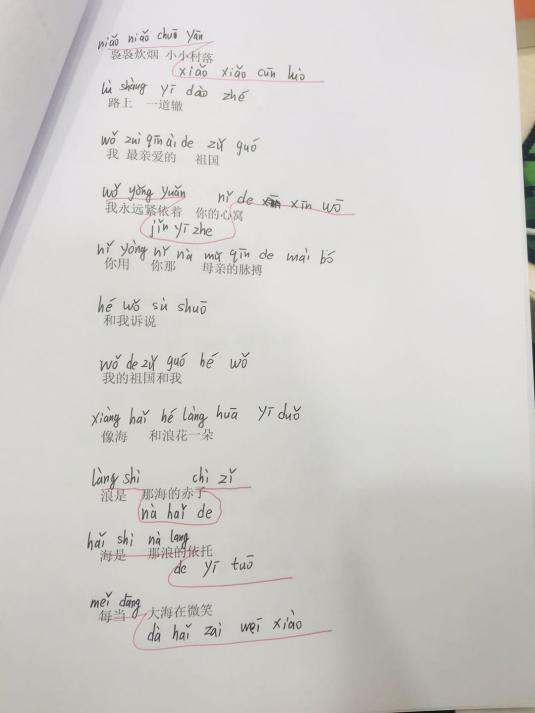 niǎo niǎo chuō yān
袅袅炊烟 小小村落
xiǎo xiǎo cūn luò
lù shàng yī dào zhé
路上 一道辙
wǒ zuì qīn ài de zǔ guó
我 最亲爱的 祖国
wǒ yǒng yuǎn nǐ de xīn wō
我永远紧依着 你的心窝
jǐn yī zhe
nǐ yòng nǐ nà mǔ qīn de mài bó
你用 你那 母亲的脉搏
hé wǒ sù shuō
和我诉说
wǒ de zǔ guó hé wǒ
我的祖国和我
xiàng hǎi hé làng huā yī duǒ
像海 和浪花一朵
làng shì chì zǐ
浪是 那海的赤子
nà hǎi de
hǎi shì nà lang
海是 那浪的依托
de yī tuō
měi dāng
每当 大海在微笑
dà hǎi zai wēi xiào